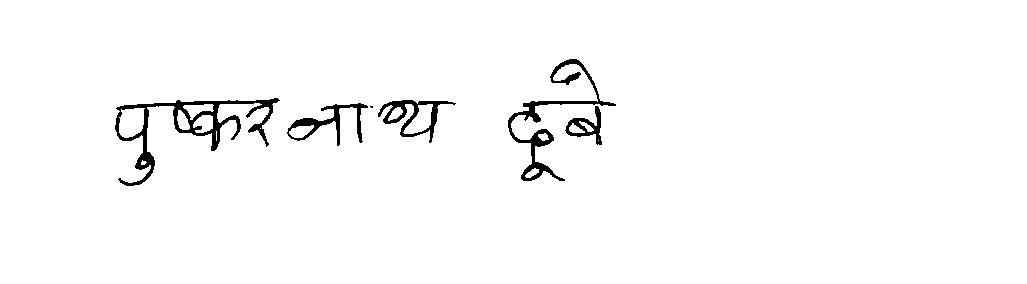 पुष्करनाथ दूबे